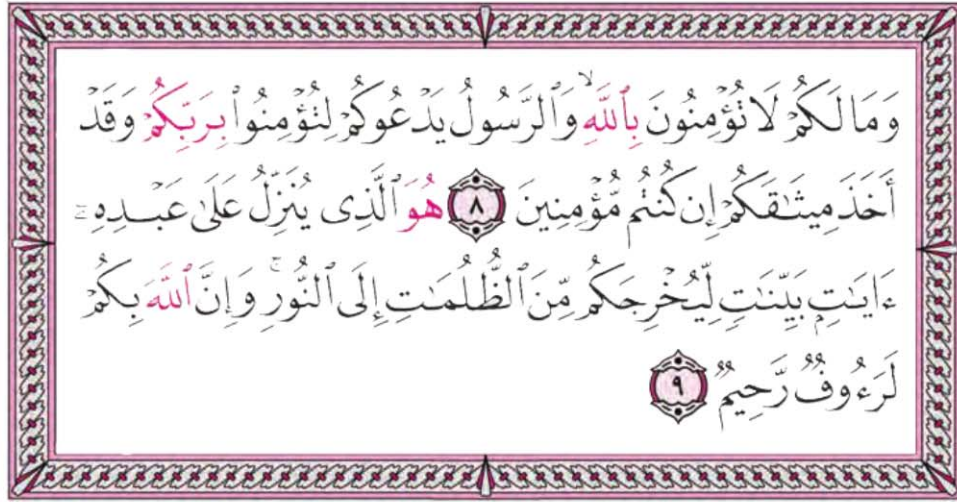 وَمَا لَكُمْ لَا تُؤْمِنُونَ بِٱللَّهِ ۙ وَٱلرَّسُولُ يَدْعُوكُمْ لِتُؤْمِنُوا۟ بِرَبِّكُمْ وَقَدْ
أَخَذَ مِيثَـٰقَكُمْ إِن كُنتُم مُّؤْمِنِينَ ٨ هُوَ ٱلَّذِى يُنَزِّلُ عَلَىٰ عَبْدِهِۦٓ
ءَايَـٰتٍۭ بَيِّنَـٰتٍ لِّيُخْرِجَكُم مِّنَ ٱلظُّلُمَـٰتِ إِلَى ٱلنُّورِ ۚ وَإِنَّ ٱللَّهَ بِكُمْ
لَرَءُوفٌ رَّحِيمٌ ٩